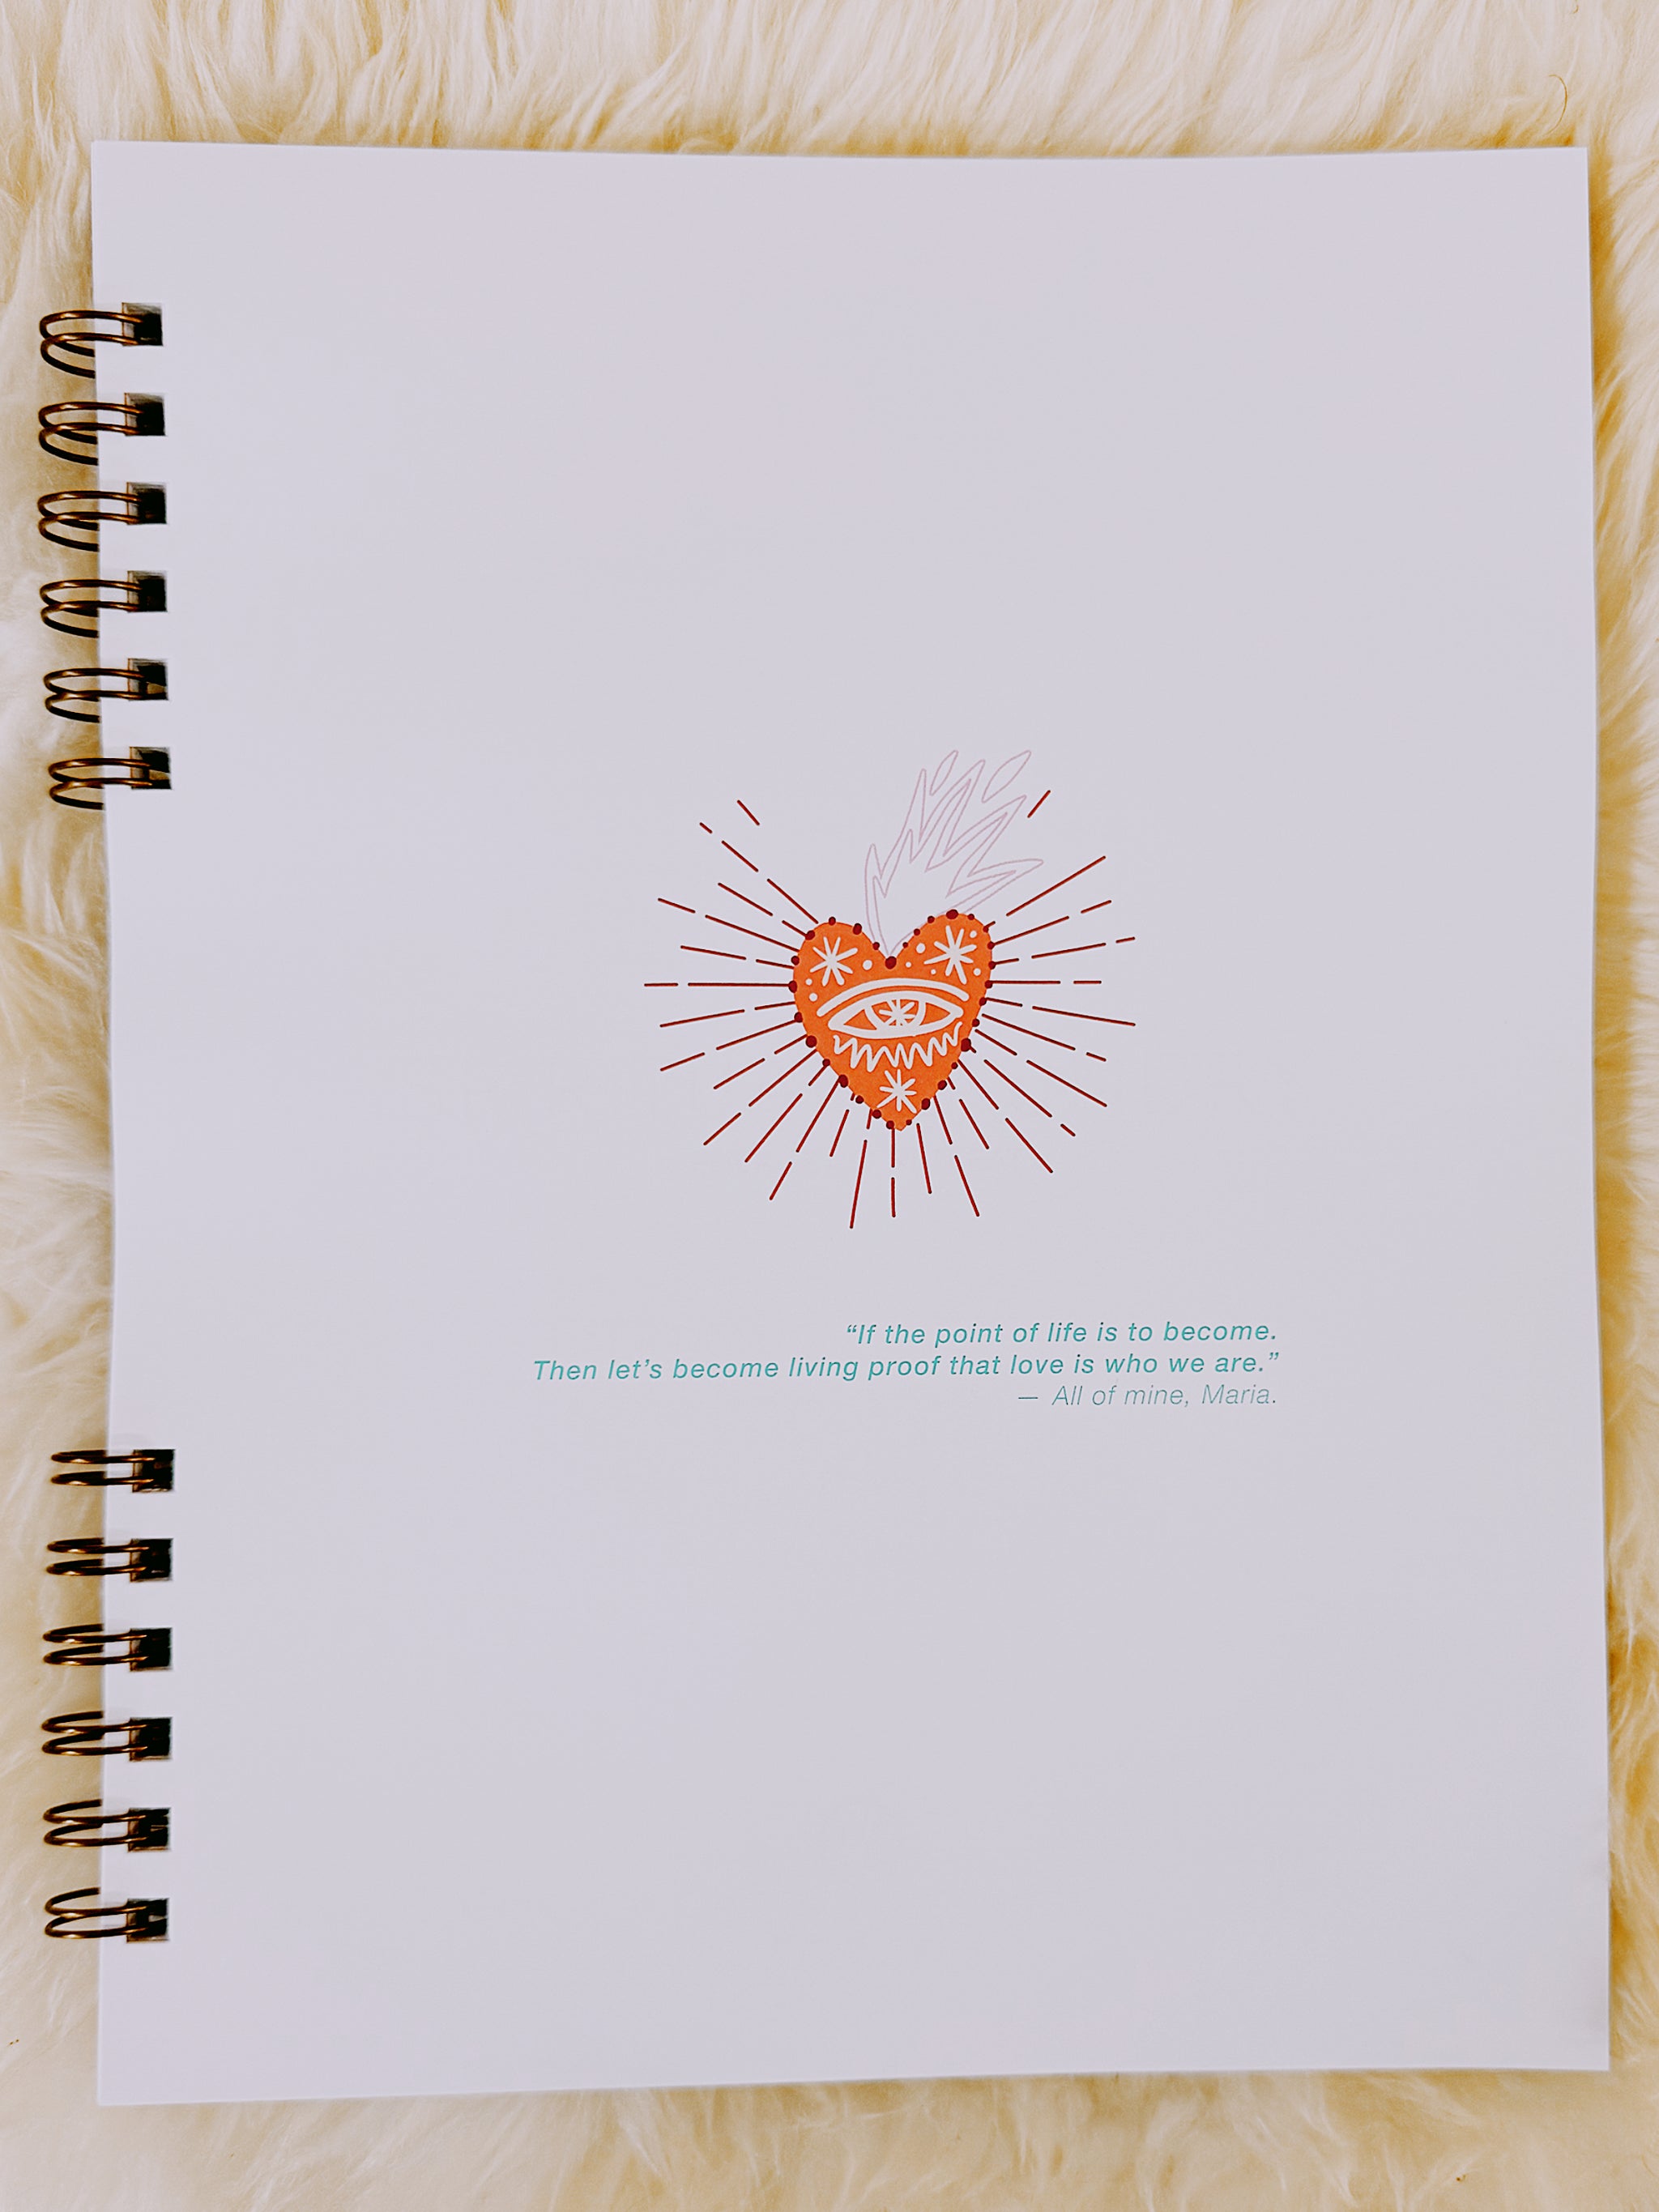 “If the point of life is to become.
Then let’s become living proof that love is who we are.”
— All of mine, Maria.